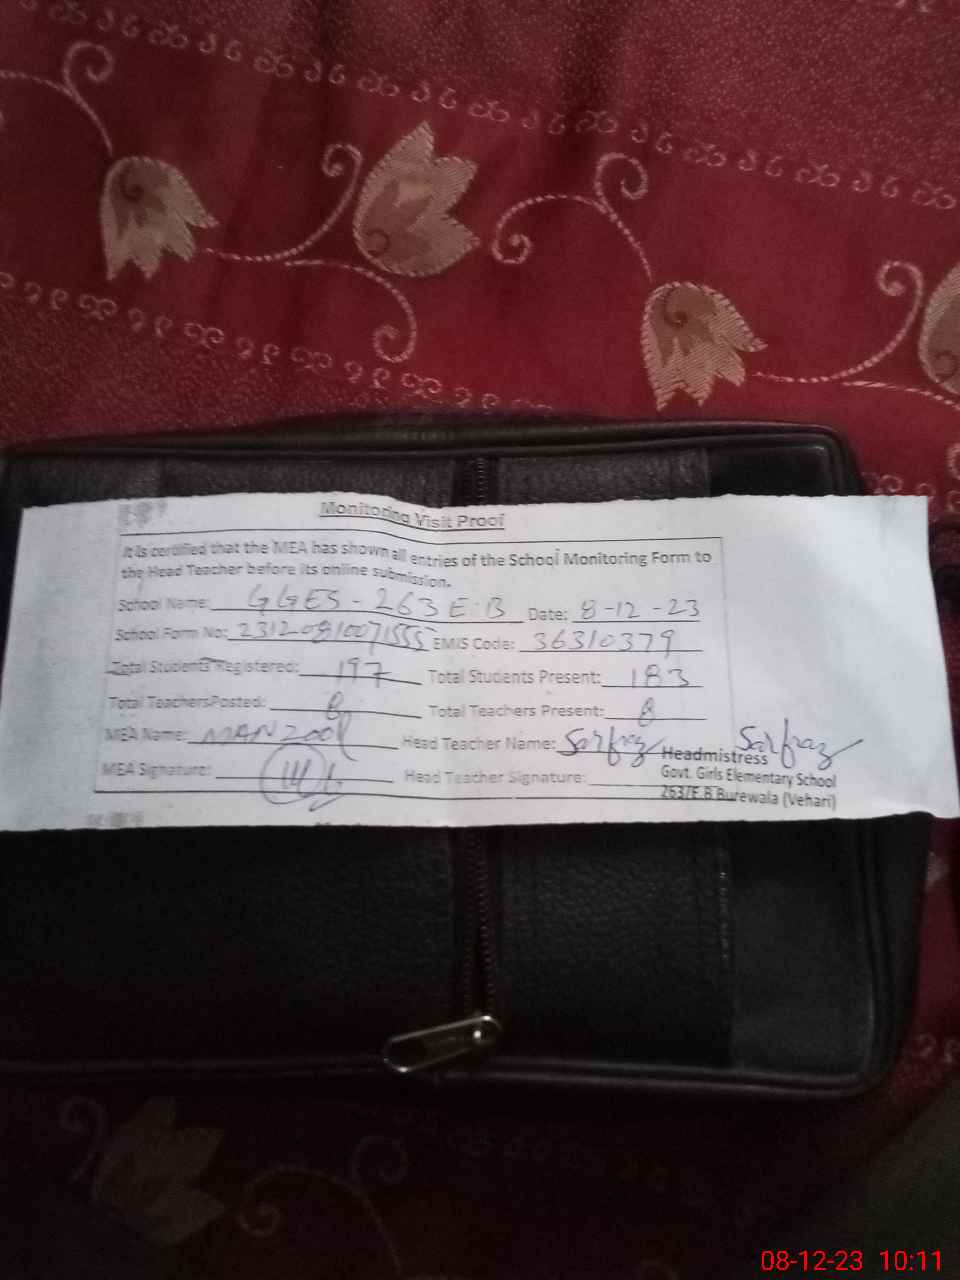 Monitoring Visit Proof
It is certified that the MEA has shown all entries of the School Monitoring Form to
the Head Teacher before its online submission.
School Name: GGES - 263 E.B Date: 8-12-23
School Form No: 23120810071555 EMIS Code: 36310379
Total Students Registered: 197 Total Students Present: 183
Total TeachersPosted: 8 Total Teachers Present: 8
MEA Name: MANZOOR Head Teacher Name: Sarfraz Sarfraz
MEA Signature: Head Teacher Signature:
Headmistress
Govt. Girls Elementary School
263/E.B Burewala (Vehari)
08-12-23 10:11